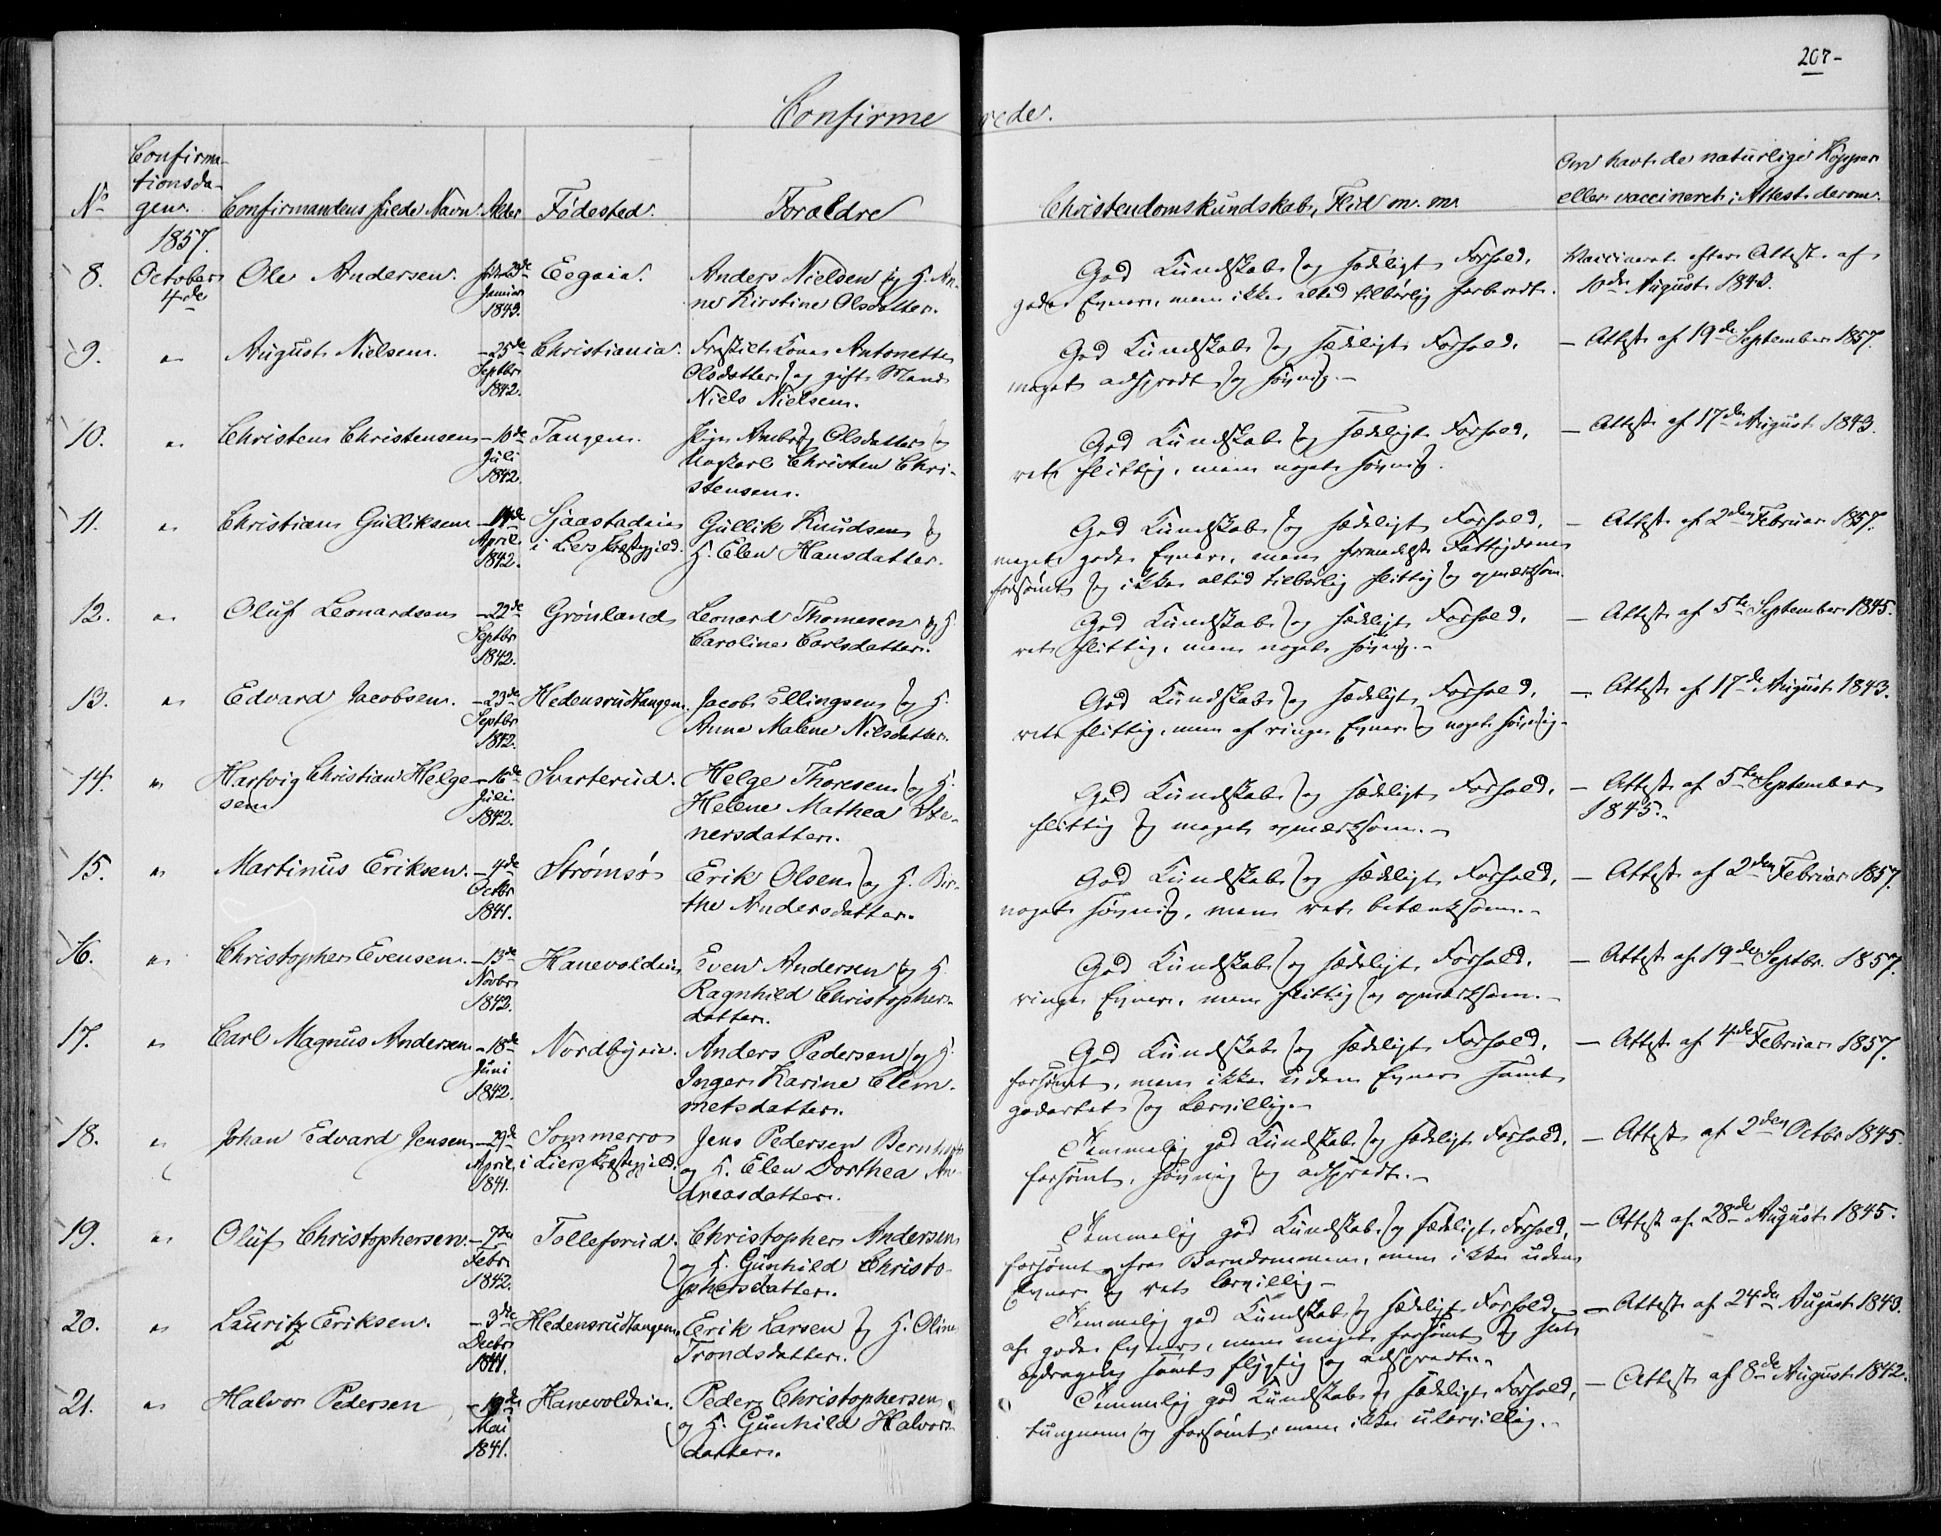 207-
Confirmerede.
No
Confirma-
tionsda-
gen.
Confirmandens fulde Navn
Alder
Fødested.
Forældre
Christendomskundskab, Flid m. m.
Om havt de naturlige Kopper
eller vaccineret; Attest derom.
1857.
8. October 4de
Ole Andersen.
23de Januar 1843.
Eegaia.
Anders Nielsen og H. An-
ne Kirstine Olsdatter.
God Kundskab og sædeligt Forhold,
gode Evner, men ikke altid tilbørlig forberedt.
Vaccineret efter Attest af
10de August 1843.
9. "
August Nielsen.
- 25de Septbr 1842.
Christiania.
Fraskilt Kone Antonette
Olsdatter og gift Mand
Niels Nielsen.
God Kundskab og sædeligt Forhold,
meget adspredt og søvnig.-
- Attest af 19de September 1857.
10. "
Christen Christensen
- 10de Juli 1842.
Tangen.
Pige Olsdatter og
Ungkarl Christen Chri-
stensen.
God Kundskab og sædeligt Forhold,
ret flittig, men noget søvnig.
- Attest af 17de August 1843.
11. "
Christian Gulliksen
- 14de April 1842.
Sjaastadeie
i Liers Præstegjeld.
Gullik Knudsen og
H. Elen Hansdatter.
God Kundskab og sædeligt Forhold,
meget gode Evner, men formedelst Fattigdom
forsømt og ikke altid tilbørlig flittig og opmærksom.
- Attest af 2den Februar 1857.
12. "
Oluf Leonardsen
- 22de Septbr 1842.
Grønland
Leonard Thomesen og H.
Caroline Carlsdatter.
God Kundskab og sædeligt Forhold,
ret flittig, men noget søvnig.-
- Attest af 5te September 1845.
13. "
Edvard Jacobsen.
- 23de Septbr 1842.
Hedensrudtangen.
Jacob Ellingsen og H.
Anne Malene Nilsdatter.
God Kundskab og sædeligt Forhold,
ret flittig, men af ringe Evner og noget søvnig-
- Attest af 17de August 1843.
14. "
Hartvig Christian Helge-
sen
- 16de Juli 1842.
Svarterud.
Helge Thoresen og H.
Helene Mathea Ste-
nersdatter.
God Kundskab og sædeligt Forhold,
flittig og meget opmærksom.-
- Attest af 5te September
1845.-
15. "
Martinus Eriksen.
- 4de Octbr 1841.
Strømsø
Erik Olsen og H. Bir-
the Andersdatter.
God Kundskab og sædeligt Forhold,
noget søvnig, men ret betænksom.-
- Attest af 2den Februar 1857.
16. "
Christopher Evensen.
- 13de Novbr 1842.
Hanevoldeie
Even Andersen og H.
Ragnhild Christopher-
datter.
God Kundskab og sædeligt Forhold,
ringe Evner, men flittig og opmærksom.-
- Attest af 19de Septbr. 1857.
17. "
Carl Magnus Andersen
- 18de Juni 1842.
Nordbyeie.
Anders Pedersen og H.
Inger Karine Clem-
metsdatter.
God Kundskab og sædeligt Forhold,
forsømt, men ikke uden Evner samt
godartet og lærvillig.-
- Attest af 4de Februar 1857.
18. "
Johan Edvard Jensen
- 29de April 1841.
Sommerro
i Liers Præstegjeld.
Jens Pedersen
og H. Elen Dorthea An-
dreasdatter.
Temmelig god Kundskab og sædeligt Forhold,
forsømt, søvnig og adspredt.-
- Attest af 2den Octbr 1845.
19. "
Oluf Christophersen.
- 7de Febr. 1842.
Tollefsrud.
Christopher Andersen
og H. Gunhild Christo-
phersdatter.
Temmelig god Kundskab og sædeligt Forhold,
forsømt fra Barndommen, men ikke uden
Evner og ret lærvillig-
- Attest af 28de August 1845.
20. "
Lauritz Eriksen.
- 3de Decbr 1841.
Hedensrudtangen.
Erik Larsen og H. Oline
Trondsdatter.
Temmelig god Kundskab og sædeligt Forhold,
af gode Evner, men meget forsømt og slet
opdragelse samt flygtig og adspredt.-
- Attest af 24de August 1843.
21. "
Halvor Pedersen
- 19de Mai 1841.
Hanevoldeie.
Peder Christophersen
og H. Gunhild Halvors-
datter.
Temmelig god Kundskab og sædeligt Forhold,
tungnem og forsømt, men ikke ulærvillig.-
- Attest af 8de August 1842.